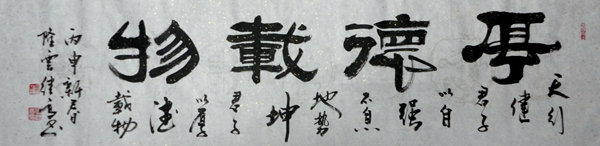 厚德載物
天行
健
君子
以自
强
不息
地势
坤
君子
以厚
德
載物
丙申新春
隆雲